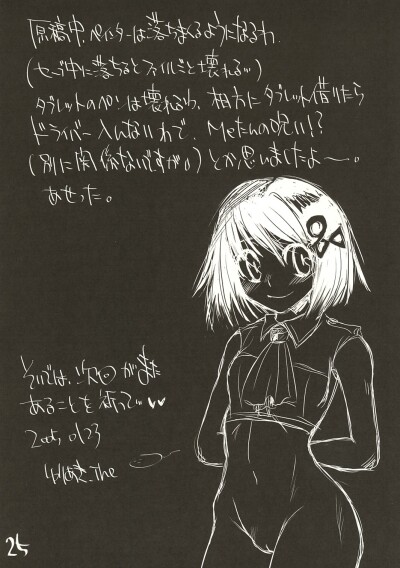 原稿中、ペインターは落ちまくるようになるわ
(セーブ中に落ちるとファイルごと壊れる…)
タブレットのペンは壊れるわ、相方にタブレット借りたら
ドライバー入んないわで、Meたんの呪い!?
(別に関係ないですが。)とか思いましたよ〜。
あせった。
それでは、次回がまた
あることを祈って…♥♥
2005 01/23
The
25